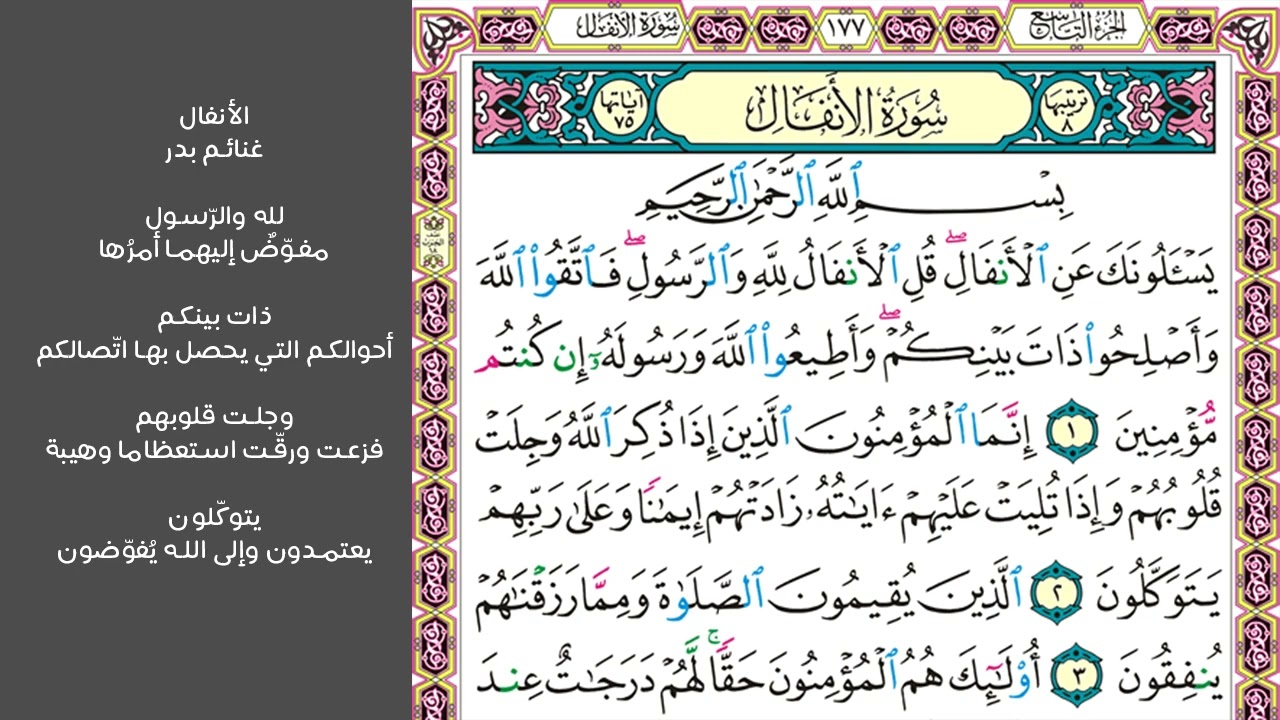 الجزء التاسع
١٧٧
سورة الأنفال
ترتيبها ٨
سُورَةُ الأَنفَالِ
آياتها ٧٥
بِسْمِ ٱللَّهِ ٱلرَّحْمَٰنِ ٱلرَّحِيمِ
يَسْـَٔلُونَكَ عَنِ ٱلْأَنفَالِ ۖ قُلِ ٱلْأَنفَالُ لِلَّهِ وَٱلرَّسُولِ ۖ فَٱتَّقُوا۟ ٱللَّهَ
وَأَصْلِحُوا۟ ذَاتَ بَيْنِكُمْ ۖ وَأَطِيعُوا۟ ٱللَّهَ وَرَسُولَهُۥٓ إِن كُنتُم
مُّؤْمِنِينَ ١ إِنَّمَا ٱلْمُؤْمِنُونَ ٱلَّذِينَ إِذَا ذُكِرَ ٱللَّهُ وَجِلَتْ
قُلُوبُهُمْ وَإِذَا تُلِيَتْ عَلَيْهِمْ ءَايَٰتُهُۥ زَادَتْهُمْ إِيمَٰنًا وَعَلَىٰ رَبِّهِمْ
يَتَوَكَّلُونَ ٢ ٱلَّذِينَ يُقِيمُونَ ٱلصَّلَوٰةَ وَمِمَّا رَزَقْنَٰهُمْ
يُنفِقُونَ ٣ أُو۟لَٰٓئِكَ هُمُ ٱلْمُؤْمِنُونَ حَقًّا ۚ لَّهُمْ دَرَجَٰتٌ عِندَ
الأنفال
غنائم بدر
لله والرّسول
مفوّضٌ إليهما أمرُها
ذات بينكم
أحوالكم التي يحصل بها اتّصالكم
وجلت قلوبهم
فزعت ورقّت استعظاما وهيبة
يتوكّلون
يعتمدون وإلى الله يُفوّضون